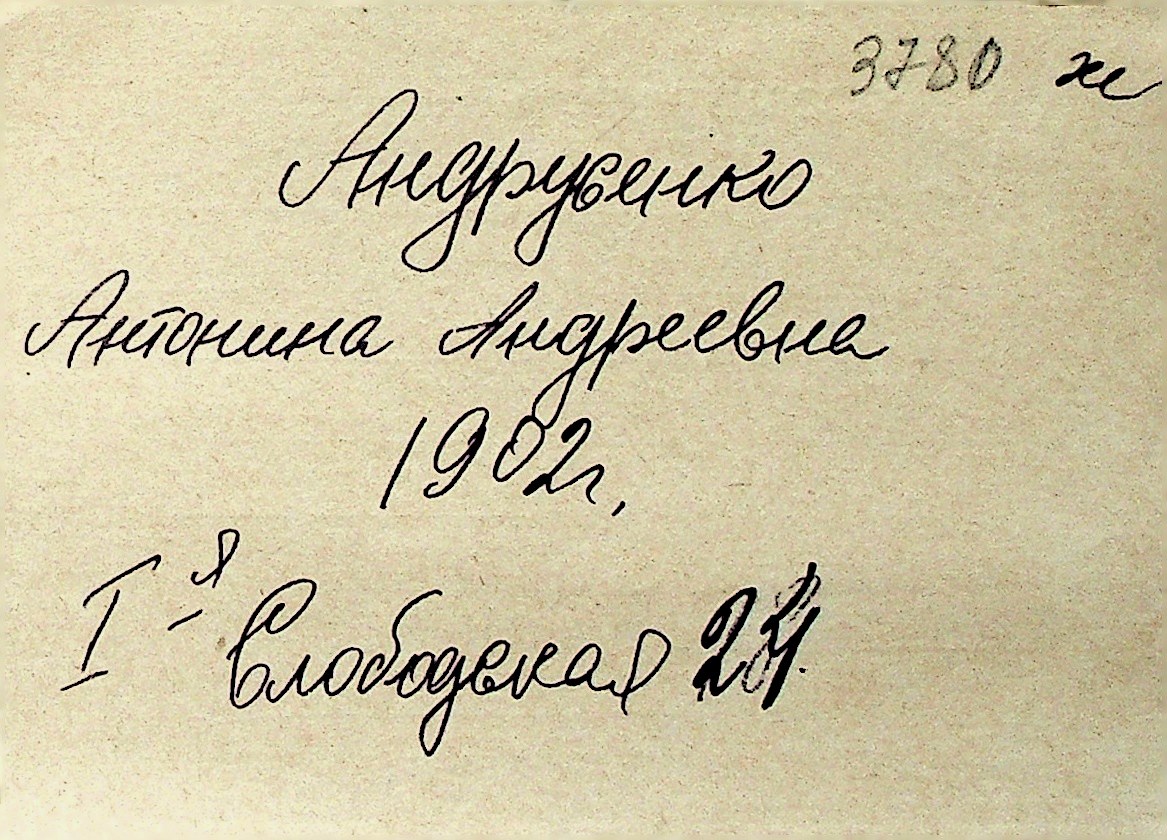 3780 ж
Андрусенко
Антонина Андреевна
1902г.
I-я Слободская